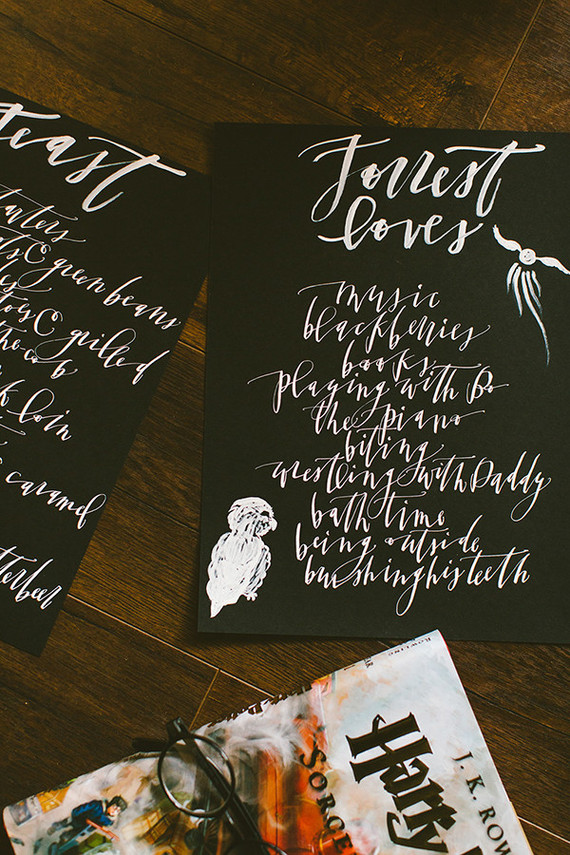 Feast
& green beans
& grilled
the cob
loin
caramel
Forrest
loves
music
blackberries
books
playing with Bo
the piano
biting
wrestling with Daddy
bath time
being outside
brushing his teeth
Harry
J. K. ROW
SORCE